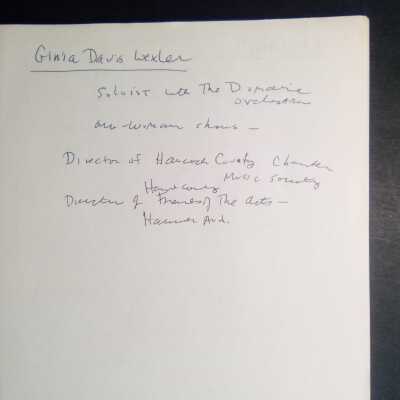 Ginia Davis Wexler
Soloist with The Domaine
orchestra
one-woman shows —
Director of Hancock County Chamber
Music Society
Director of Friends of The Arts —
Hancock